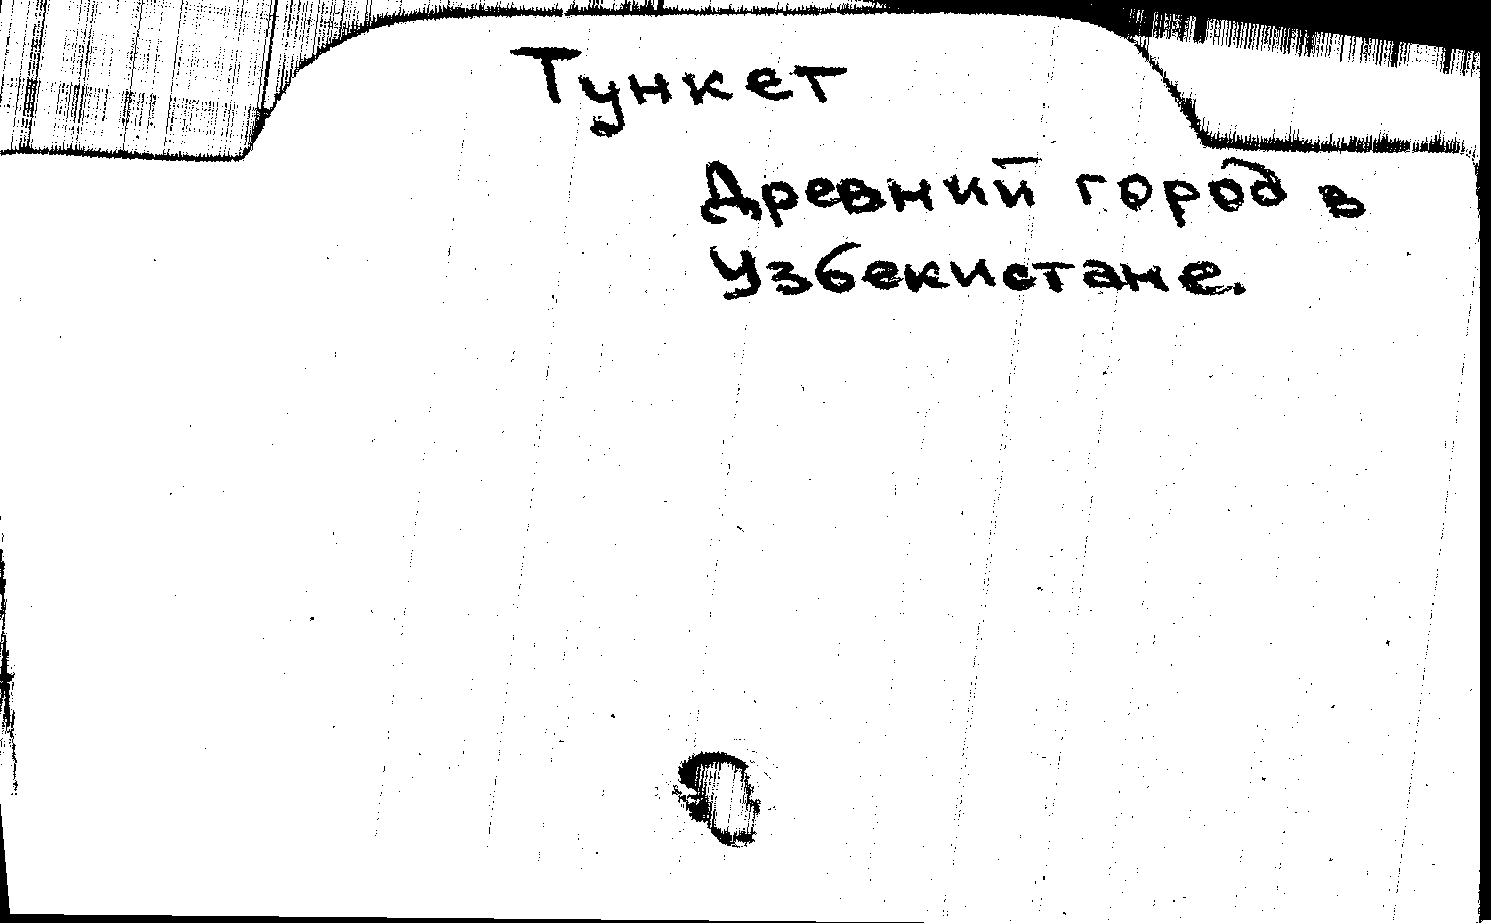 Тункет
Древний город в
Узбекистане.